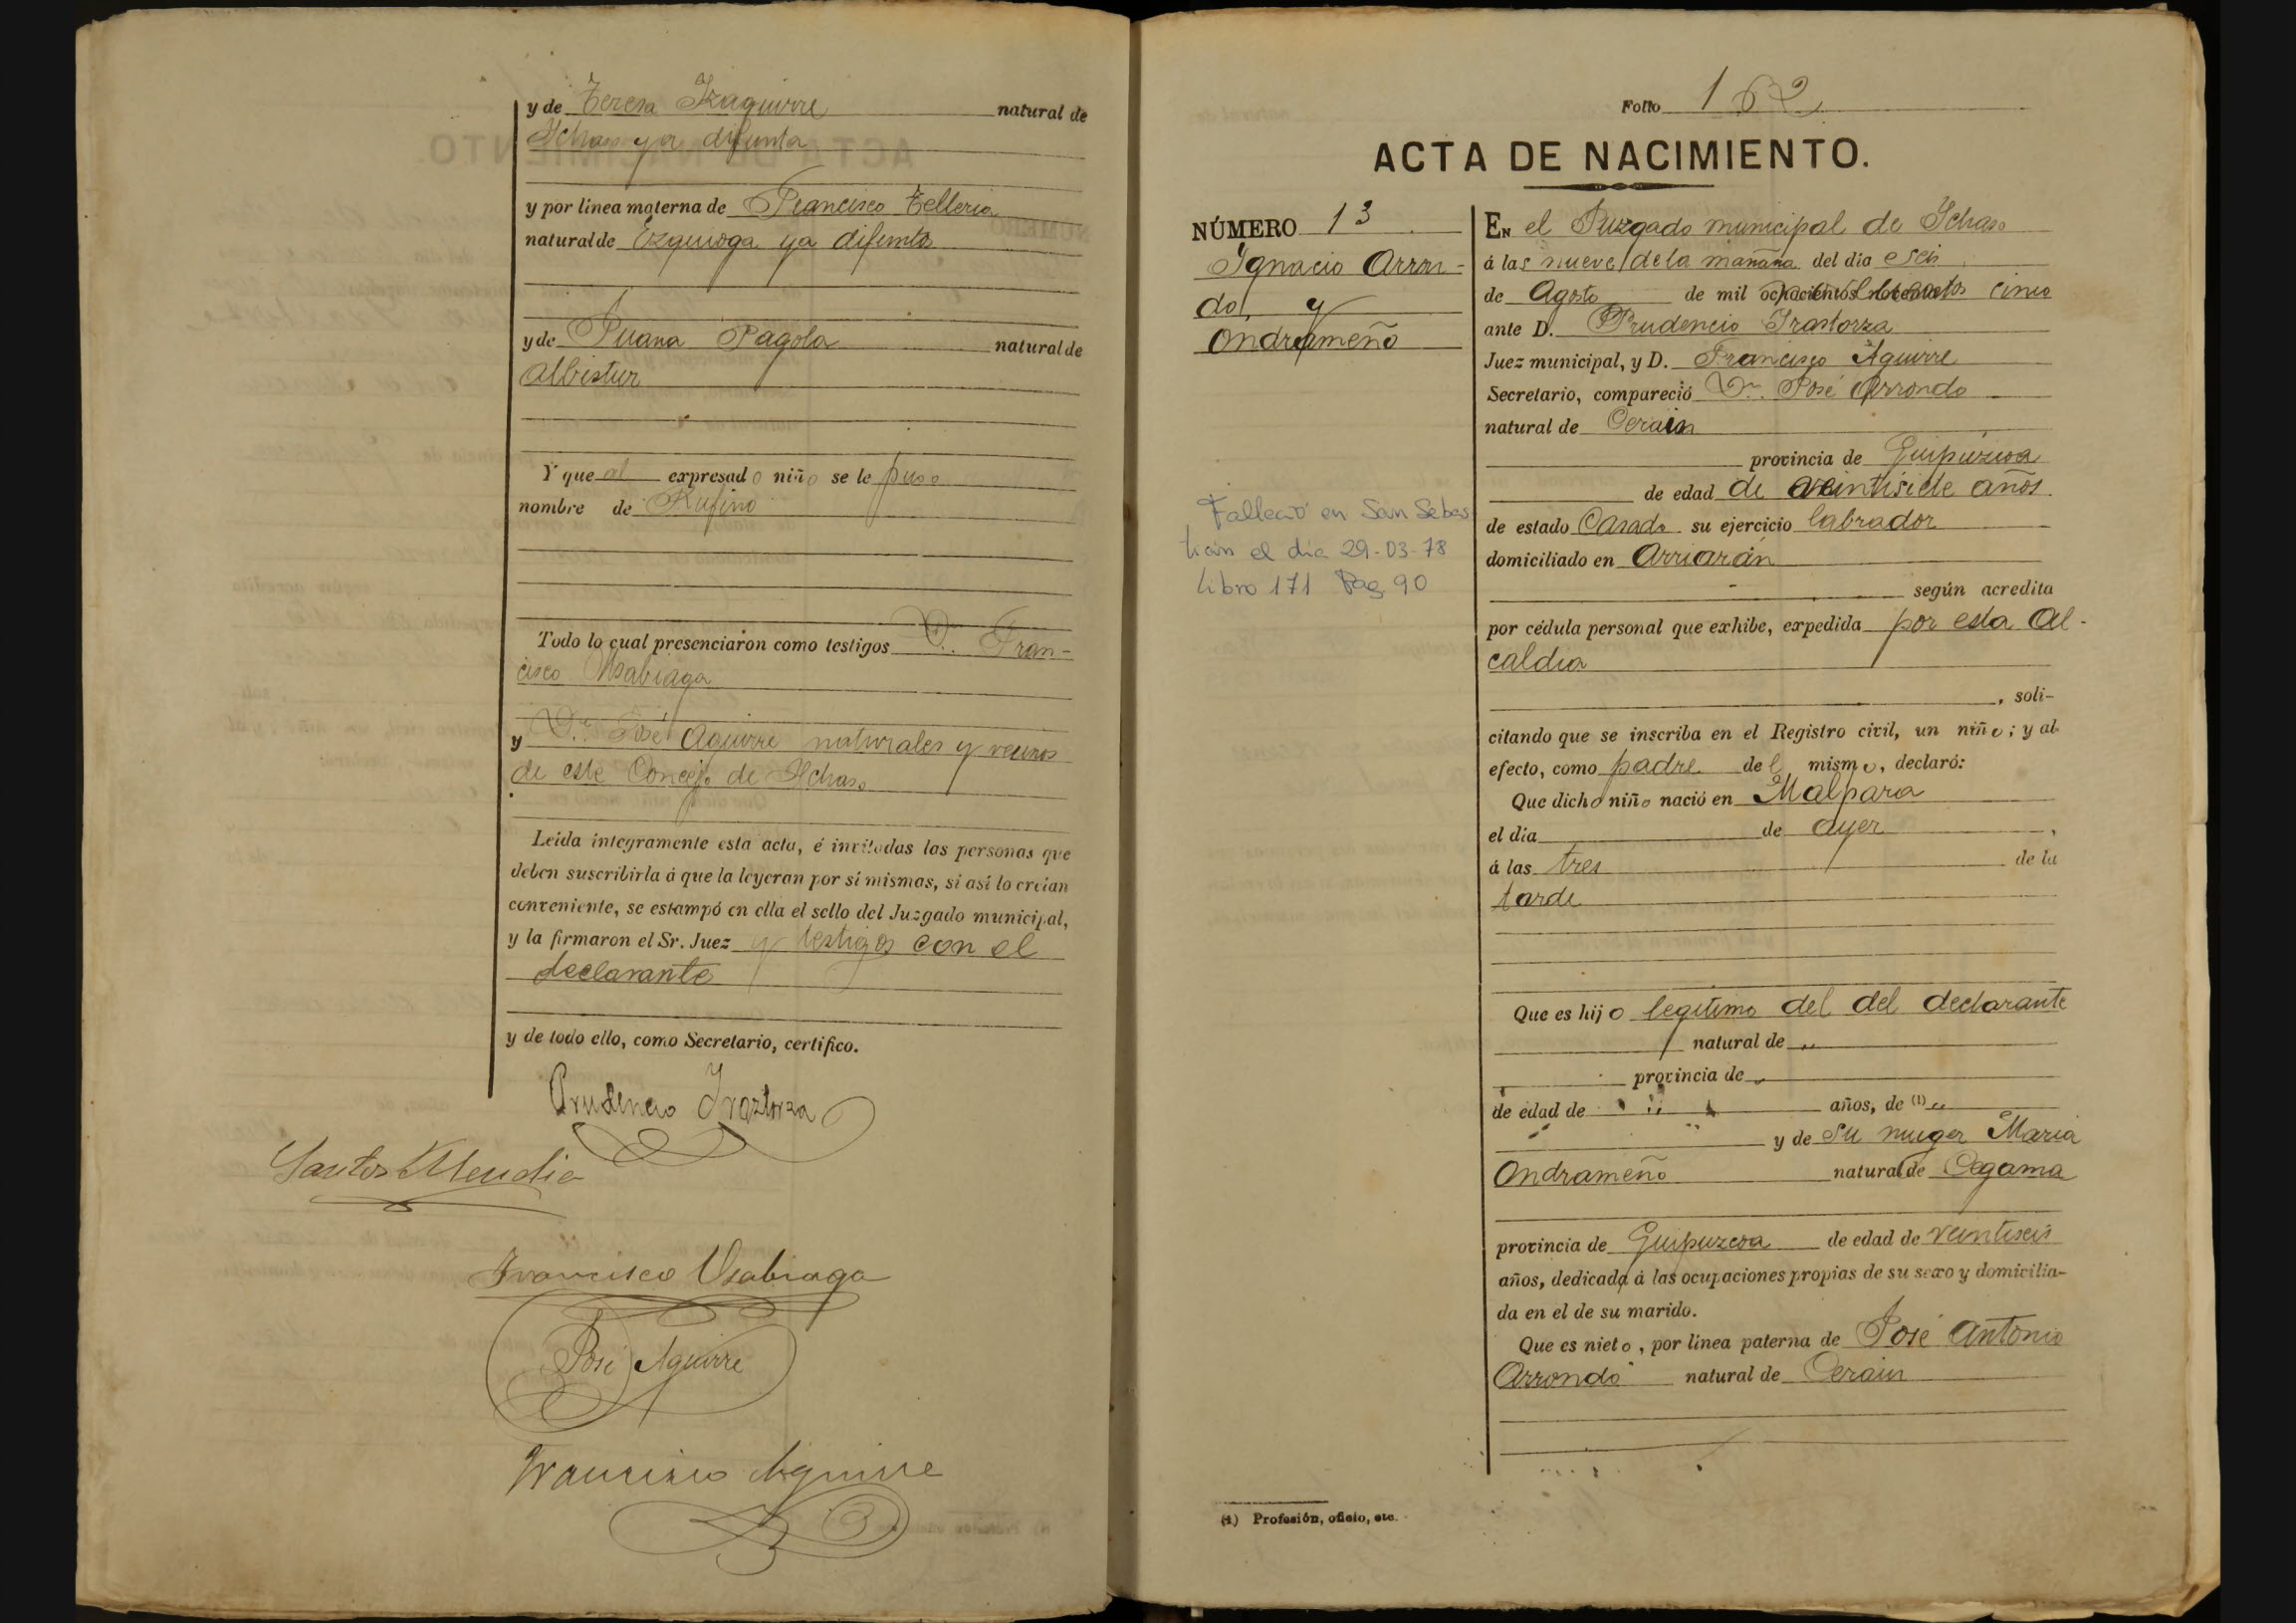 y de Teresa Izaguirre natural de
Ichaso ya difunta
y por línea materna de Francisco Telleria
natural de Ezquioga ya difunto
y de Juana Pagola natural de
Albistur
Y que al expresado niño se le puso
nombre de Rufino
Todo lo cual presenciaron como testigos Dn. Fran-
cisco Usabiaga
y Dn. José Aguirre naturales y vecinos
de este Concejo de Ichaso
Leída íntegramente esta acta, é invitadas las personas que
deben suscribirla á que la leyeran por sí mismas, si así lo creían
conveniente, se estampó en ella el sello del Juzgado municipal,
y la firmaron el Sr. Juez y testigos con el
declarante
y de todo ello, como Secretario, certifico.
Prudencio Iraztorza
Santos Mendia
Francisco Usabiaga
José Aguirre
Francisco Aguirre
Folio 162
ACTA DE NACIMIENTO.
NÚMERO 13
Ignacio Arron-
do y
Ondrameño
Falleció en San Sebas
tián el día 29-03-78
Libro 171 Pag 90
En el Juzgado municipal de Ichaso
á las nueve de la mañana del día seis
de Agosto de mil cinco
ante D. Prudencio Irastorza
Juez municipal, y D. Francisco Aguirre
Secretario, compareció Dn. José Arrondo
natural de Cerain
provincia de Guipúzcoa
de edad de veintisiete años
de estado Casado su ejercicio labrador
domiciliado en Arriarán
según acredita
por cédula personal que exhibe, expedida por esta Al-
caldia
, soli-
citando que se inscriba en el Registro civil, un niño; y al
efecto, como padre del mismo, declaró:
Que dicho niño nació en Malpara
el día de ayer,
á las tres de la
tarde
Que es hijo legítimo del del declarante
natural de "
provincia de "
de edad de " años, de (1) "
y de su muger Maria
Ondrameño natural de Cegama
provincia de Guipuzcoa de edad de veintiseis
años, dedicada á las ocupaciones propias de su sexo y domicilia-
da en el de su marido.
Que es nieto, por línea paterna de José Antonio
Arrondo natural de Cerain
(1) Profesión, oficio, etc.